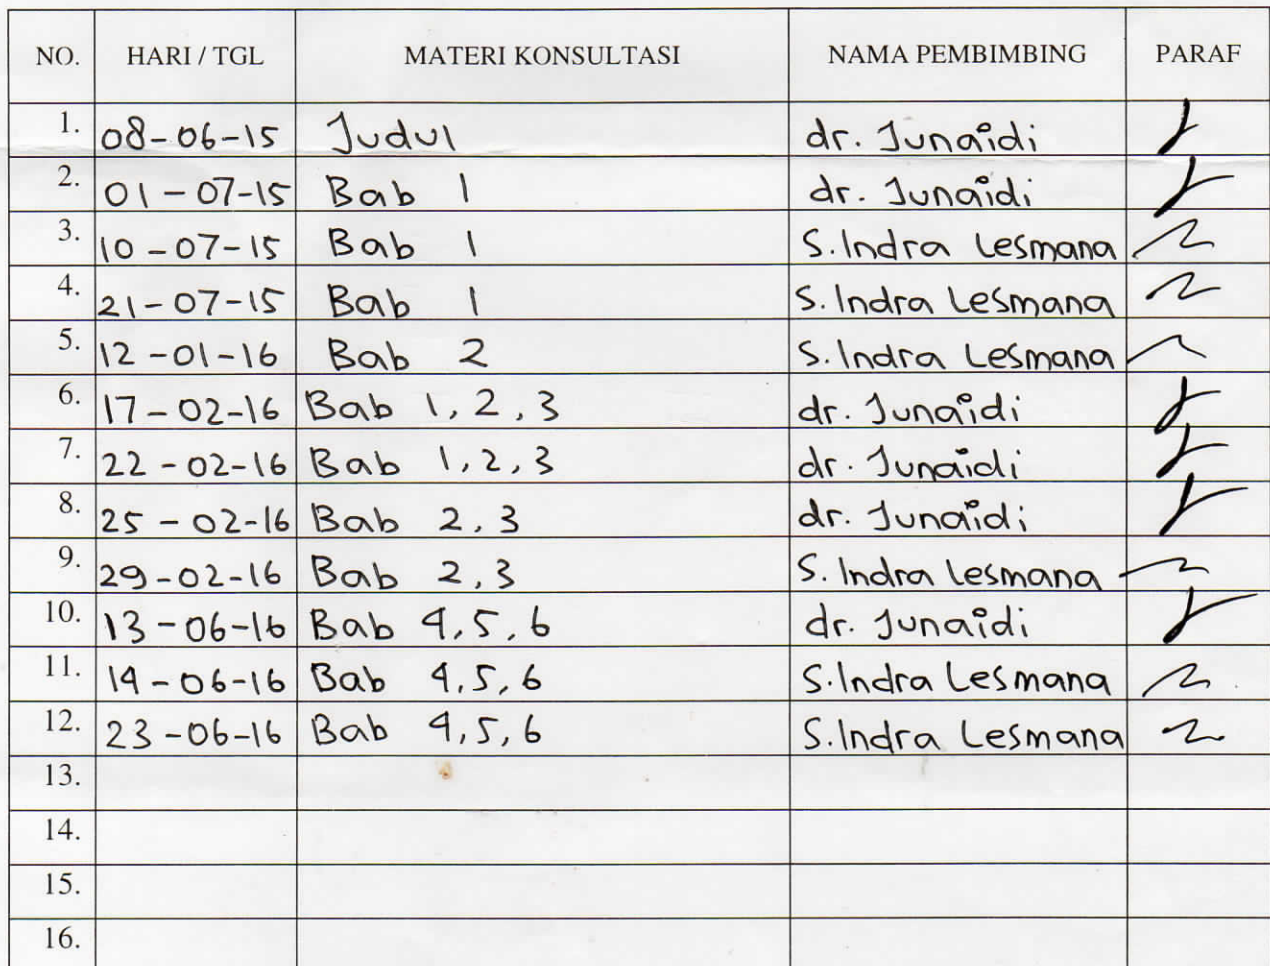 NO. HARI / TGL MATERI KONSULTASI NAMA PEMBIMBING PARAF
1. 08-06-15 Judul dr. Junaidi
2. 01-07-15 Bab 1 dr. Junaidi
3. 10-07-15 Bab 1 S. Indra Lesmana
4. 21-07-15 Bab 1 S. Indra Lesmana
5. 12-01-16 Bab 2 S. Indra Lesmana
6. 17-02-16 Bab 1, 2, 3 dr. Junaidi
7. 22-02-16 Bab 1, 2, 3 dr. Junaidi
8. 25-02-16 Bab 2, 3 dr. Junaidi
9. 29-02-16 Bab 2, 3 S. Indra Lesmana
10. 13-06-16 Bab 4, 5, 6 dr. Junaidi
11. 14-06-16 Bab 4, 5, 6 S. Indra Lesmana
12. 23-06-16 Bab 4, 5, 6 S. Indra Lesmana
13.
14.
15.
16.